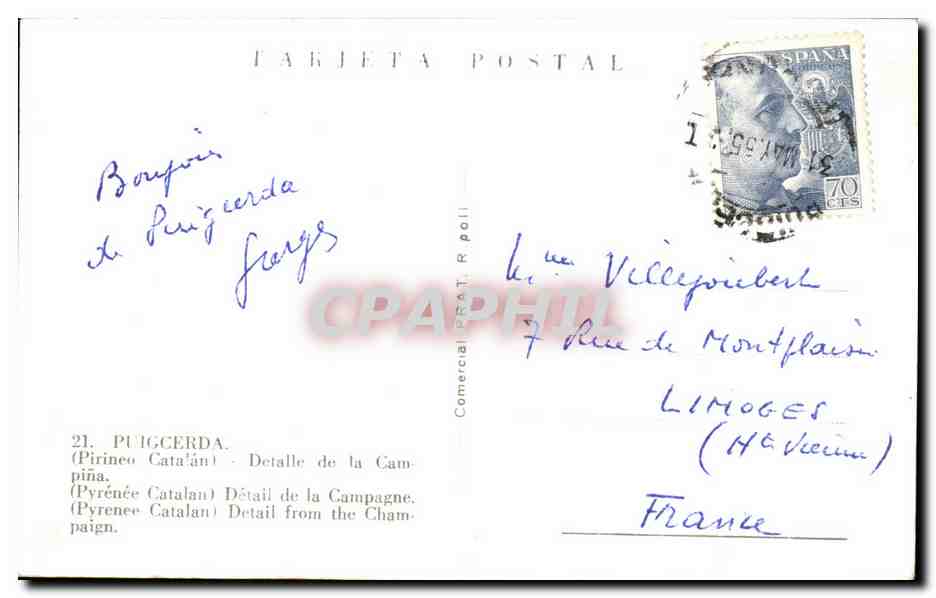 TARJETA POSTAL
ESPAÑA
CORREOS
70
CTS
31 MAY. 55
Bonjour
de Puigcerda
Georges
Comercial PRAT. Ripoll
CPAPHIL
Mme Villejoubert
7 Rue de Montplaisir
LIMOGES
(Hte Vienne)
France
21. PUIGCERDA.
(Pirineo Catalán) - Detalle de la Cam-
piña.
(Pyrénée Catalan) Détail de la Campagne.
(Pyrenee Catalan) Detail from the Cham-
paign.